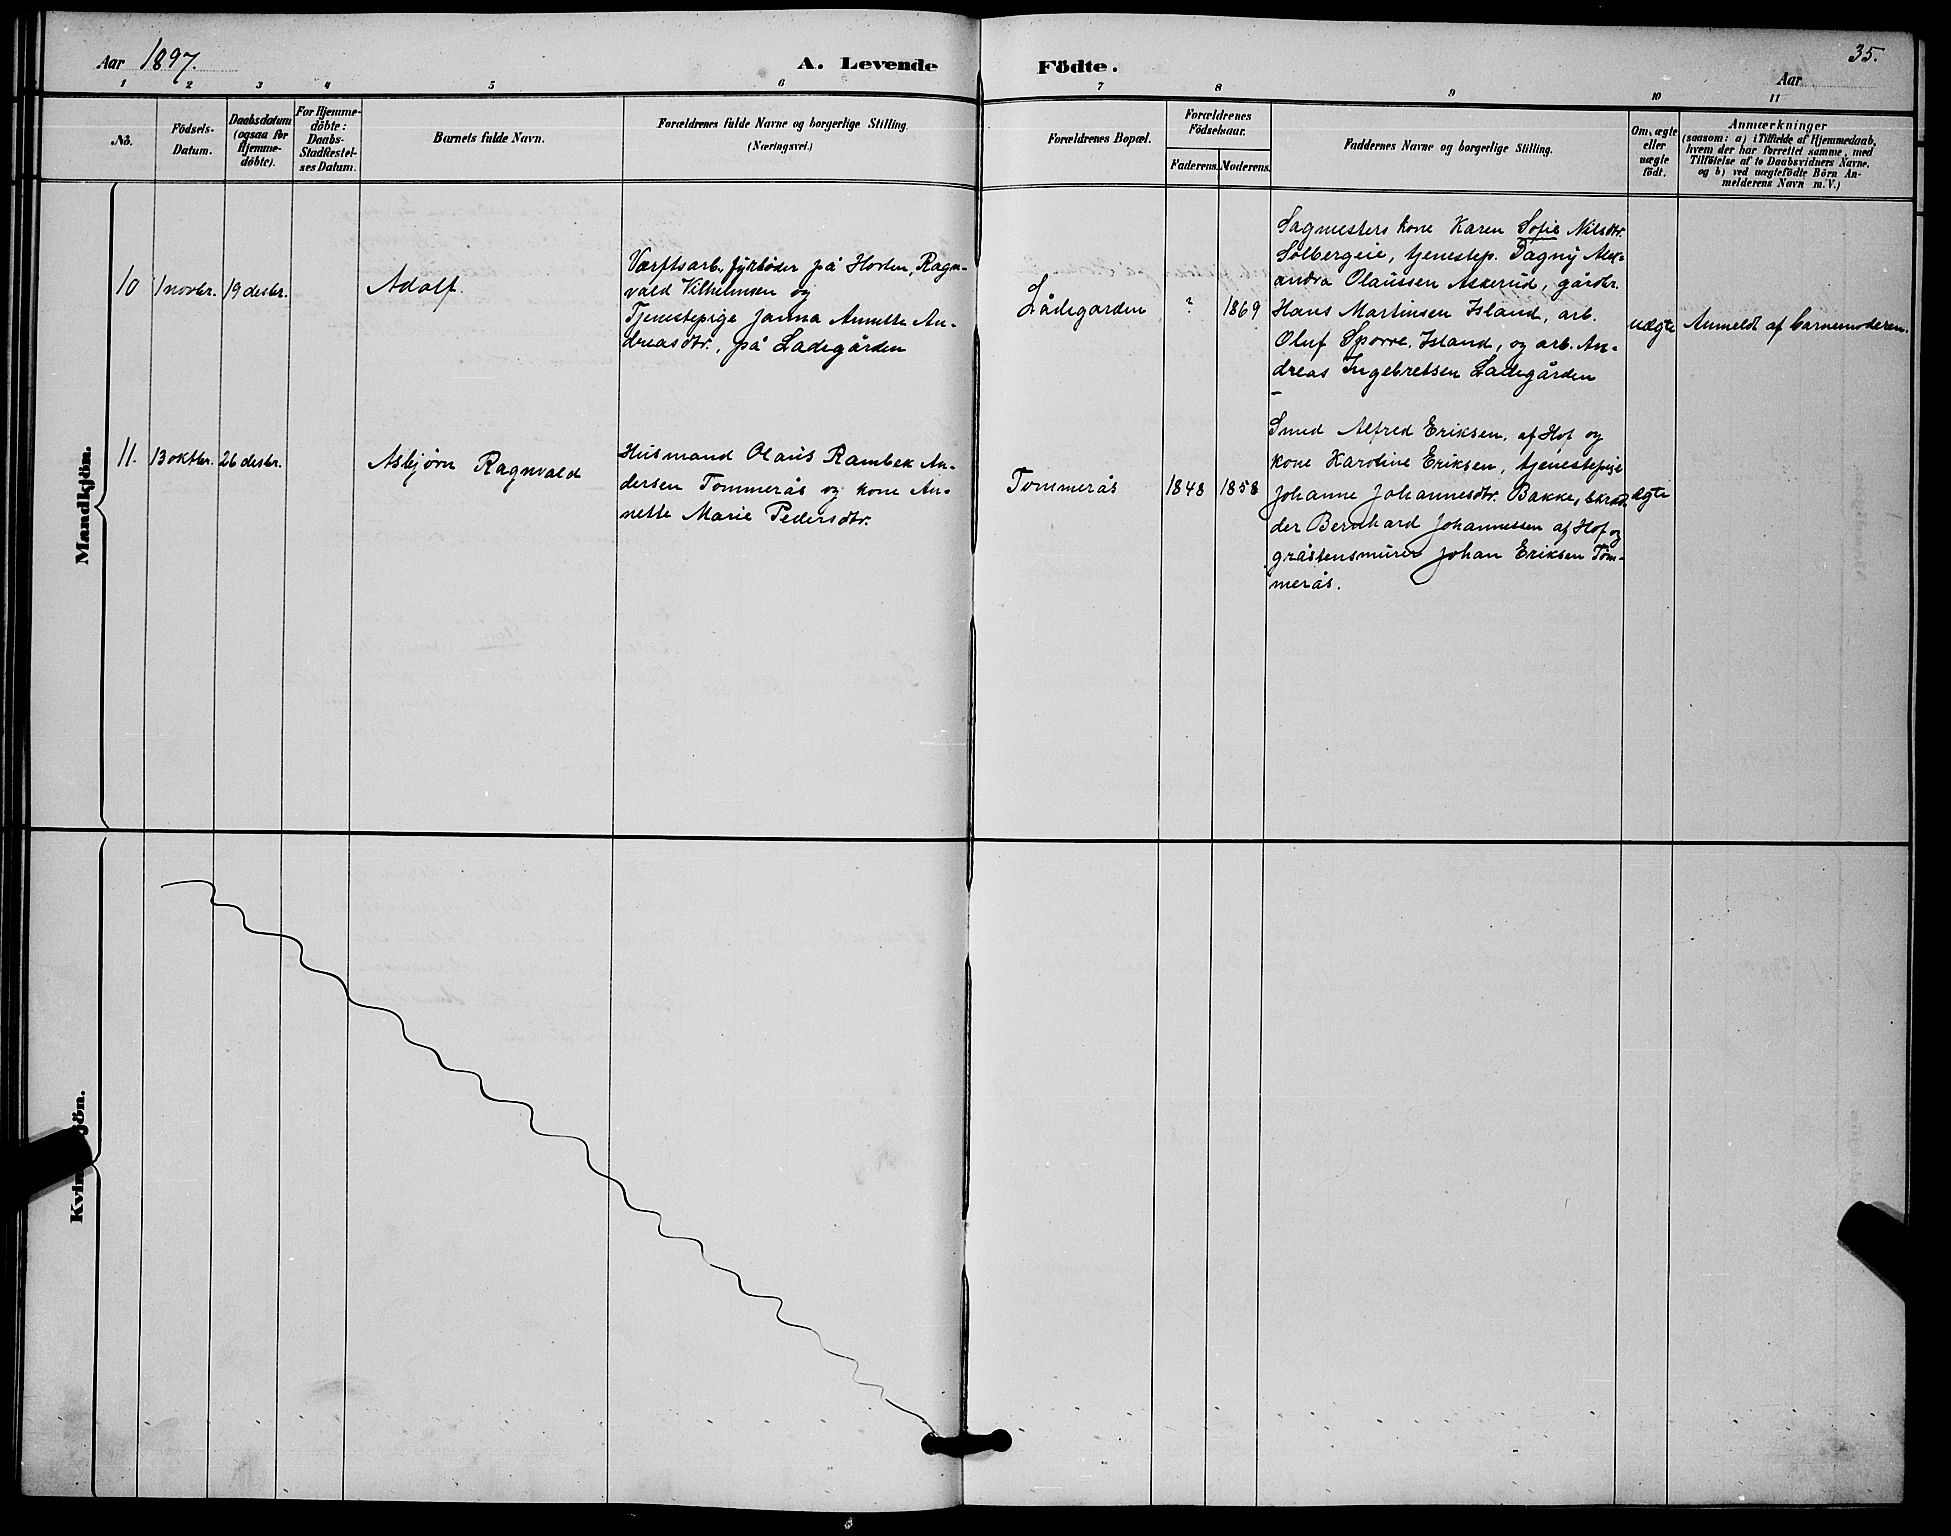 Aar 1897.
A. Levende Födte.
35.
Aar
1 2 3 4 5 6 7 8 9 10 11
No.
Födsels-
Datum.
Daabsdatum
(ogsaa for
Hjemme-
döbte).
For Hjemme-
döbte:
Daabs-
Stadfæstel-
ses Datum.
Barnets fulde Navn.
Forældrenes fulde Navne og borgerlige Stilling.
(Næringsvei.)
Forældrenes Bopæl.
Forældrenes
Födselsaar.
Faderens. Moderens.
Faddernes Navne og borgerlige Stilling.
Om ægte
eller
uægte
födt.
Anmærkninger
(saasom: a) i Tilfælde af Hjemmedaab,
hvem der har forrettet samme, med
Tilföielse af to Daabsvidners Navne,
og b) ved uægtefödte Börn An-
melderens Navn m.V.)
Mandkjön.
10
1 novbr.
19 desbr.
Adolf.
Værftsarb. fyrbøder på Horten, Ragn-
vald Vilhelmsen og
Tjenestepige Janna Annette An-
dreasdtr., på Ladegården
Ládegarden
?
1869
Sagmesters kone Karen Sofie Nilsdtr.
Solbergeie, tjenestep. Dagny Alex-
andra Olaussen Askerud, gårdbr.
Hans Martinsen Island, arb.
Oluf Sporre, Island, og arb. An-
dreas Ingebretsen Ladegården
uægte
Anmeldt af barnemoderen.
11.
13 oktbr.
26 desbr.
Asbjørn Ragnvald
Husmand Olaus Rambek An-
dersen Tommerås og kone An-
nette Marie Pedersdtr.
Tommerås
1848
1858
Smed Alfred Eriksen, af Hof og
kone Karoline Eriksen, tjenestepige
Johanne Johannesdtr. Bakke, skræd-
der Bernhard Johannessen af Hof og
gråstensmurer Johan Eriksen Tom-
merås.
ægte
Kvi jön.